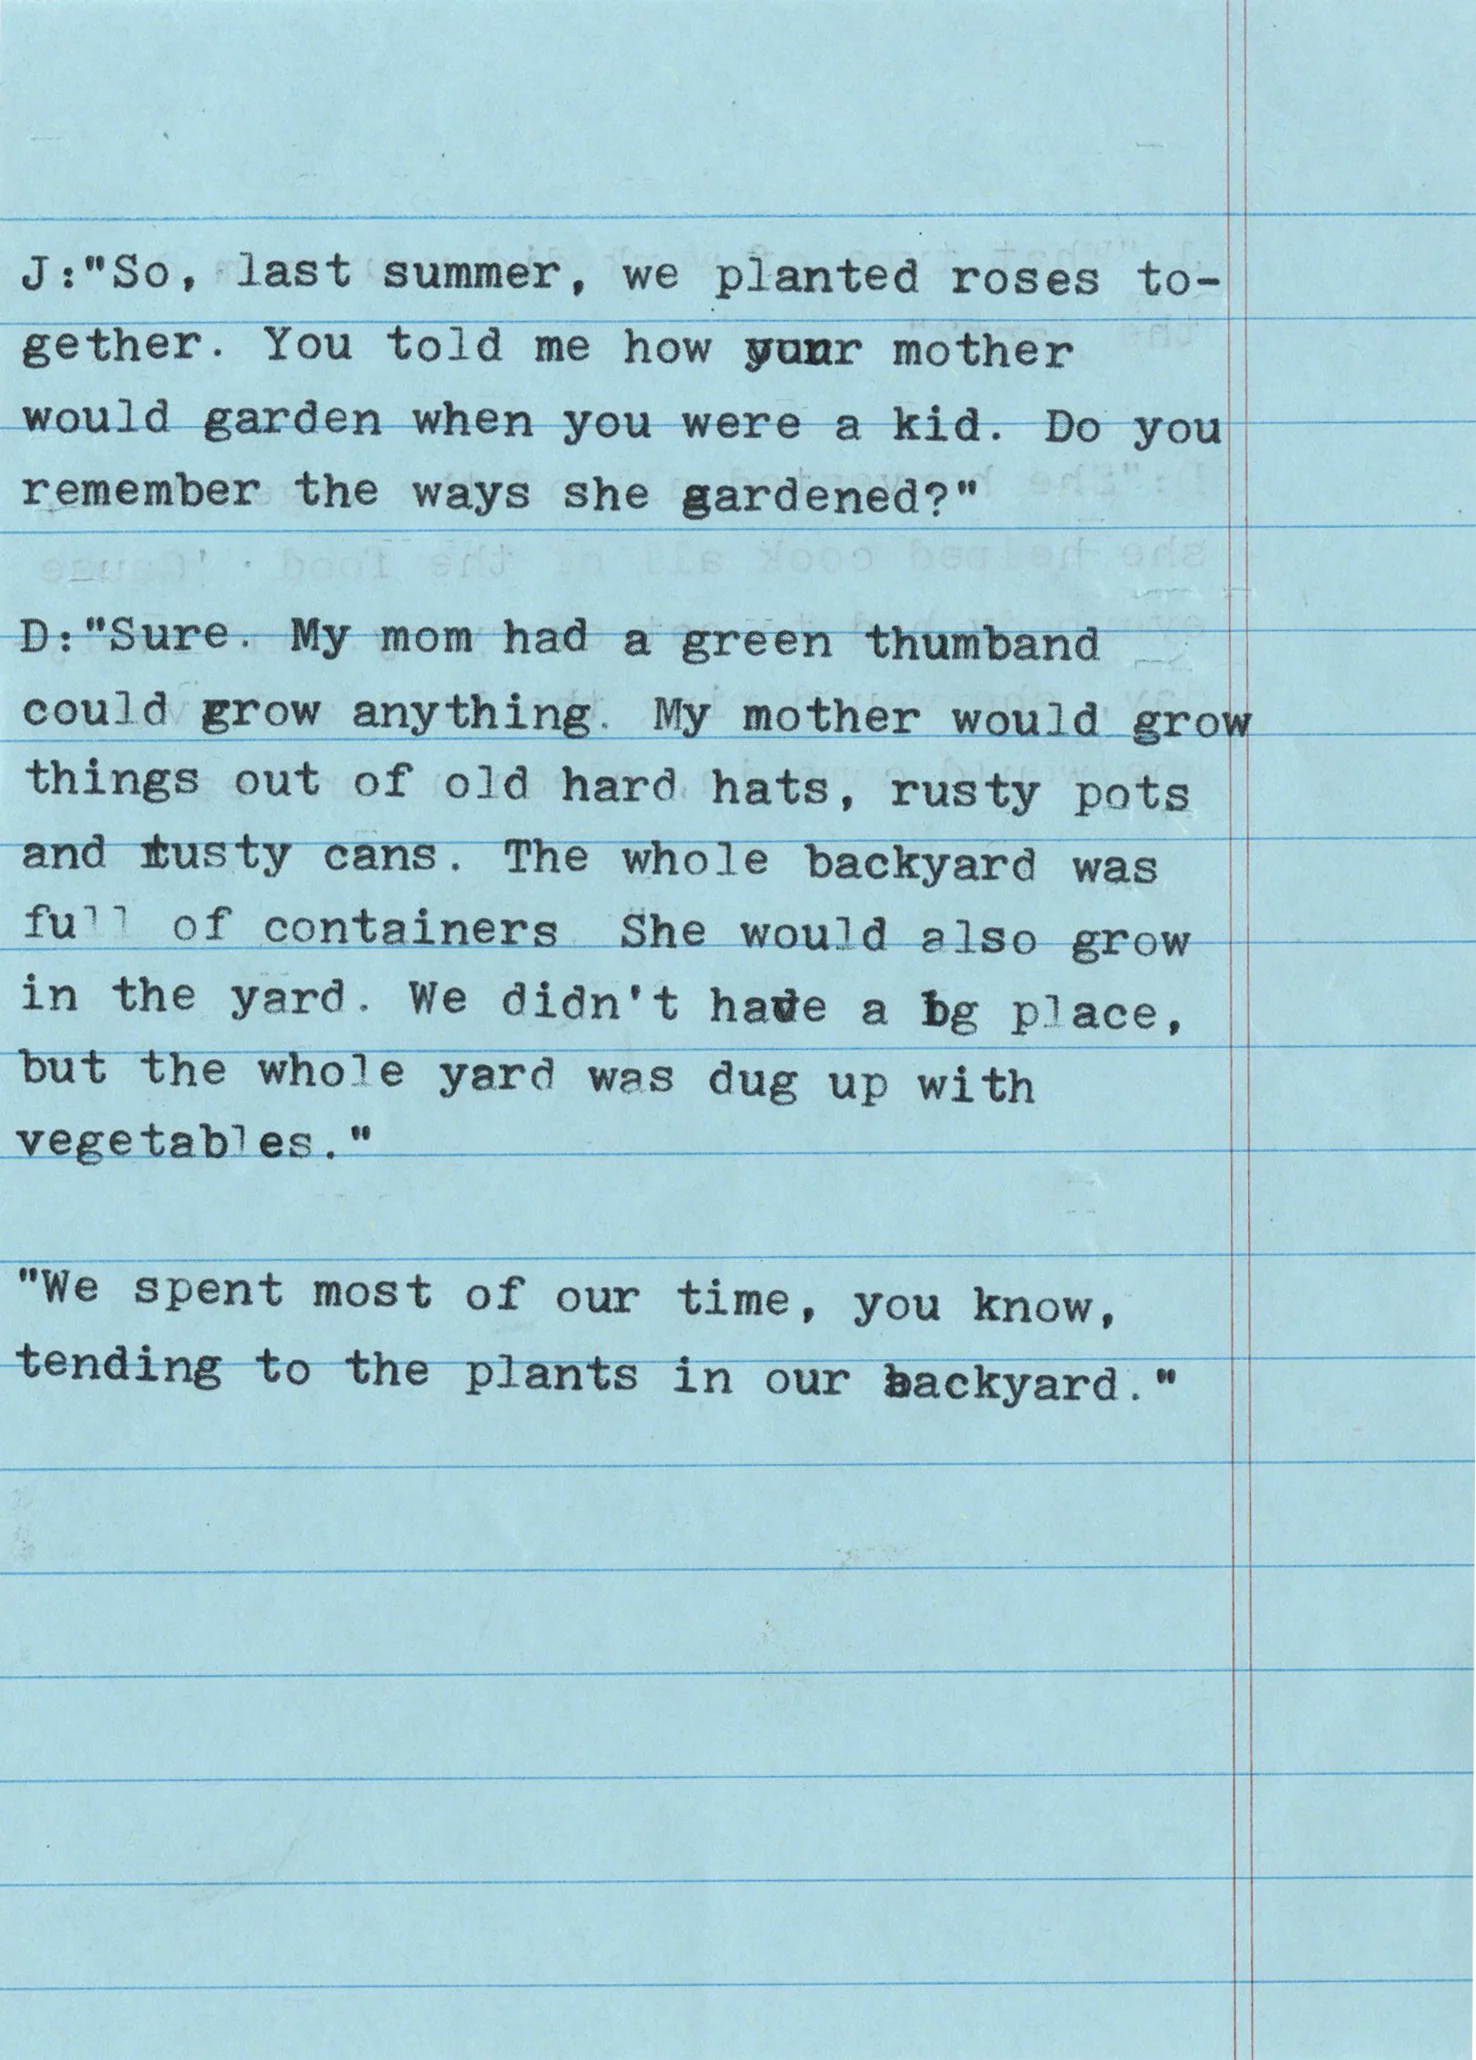 J:"So, last summer, we planted roses to-
gether. You told me how your mother
would garden when you were a kid. Do you
remember the ways she gardened?"
D:"Sure. My mom had a green thumband
could grow anything. My mother would grow
things out of old hard hats, rusty pots
and rusty cans. The whole backyard was
full of containers She would also grow
in the yard. We didn't have a bg place,
but the whole yard was dug up with
vegetables."
"We spent most of our time, you know,
tending to the plants in our backyard."